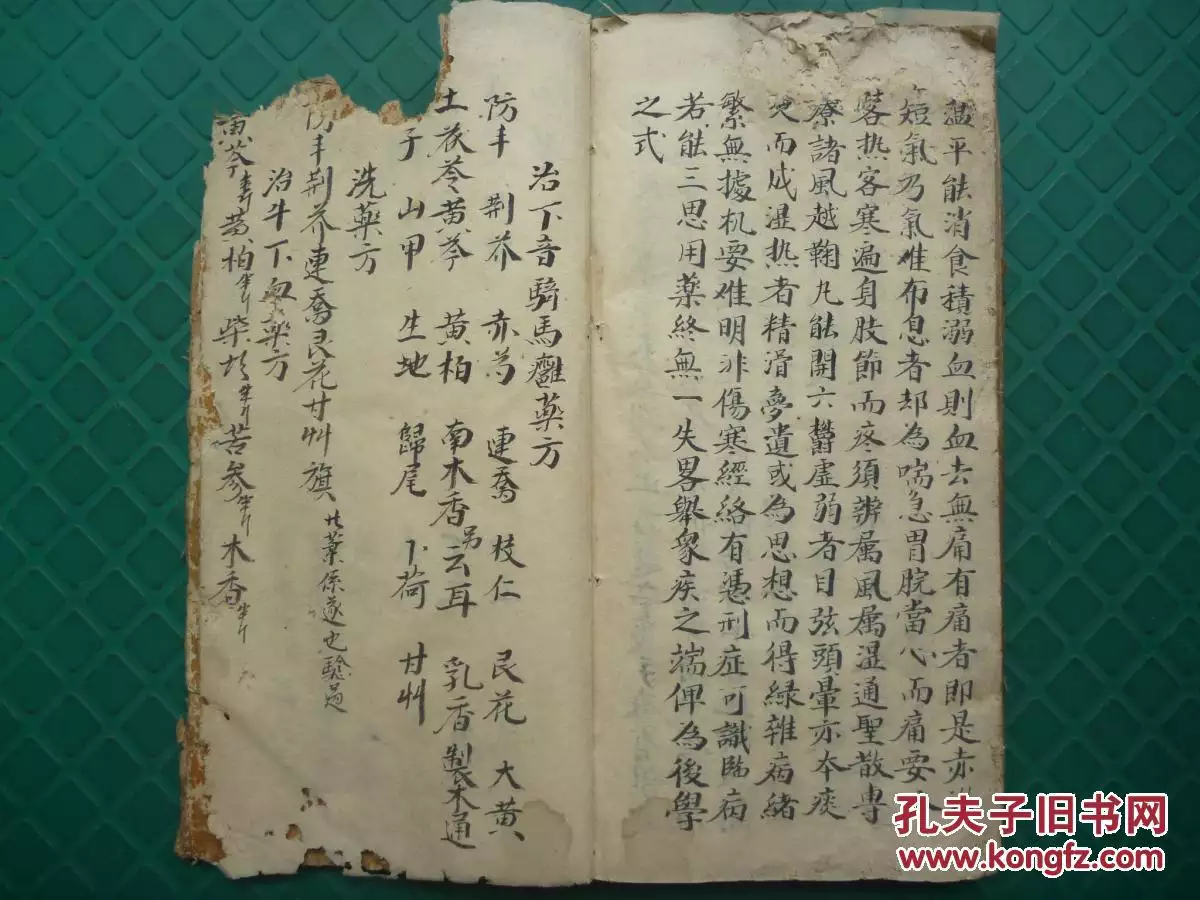 温平能消食積溺血則血去無痛有痛者即是赤
短氣乃氣难布息者却為喘急胃脘當心而痛要
客热客寒遍身肢節而疼須辨属風属湿通聖散専
療諸風越鞠九能開六欝虚弱者目弦頭暈亦夲痰
火而成湿热者精滑夢遺或為思想而得緑雜病緒
繁無據机要难明非傷寒經絡有憑刑症可識臨病
若能三思用藥終無一失畧舉象疾之端俾為後學
之式
治下音騎馬癰藥方
防丰 荆芥 赤芍 連喬 枝仁 艮花 大黄
土茯苓 黄芩 黄柏 南木香 另 云耳 乳香 製 木通
子 山甲 生地 歸尾 卜荷 甘艸
洗藥方
防丰荆芥連喬艮花甘艸旗 此藥係遂也驗過
治牛下血藥方
黄芩 黄柏 柴 苦參 木香
孔夫子旧书网
www.kongfz.com